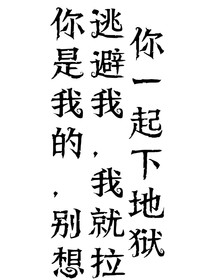 你是我的，别想
逃避我，我就拉
你一起下地狱